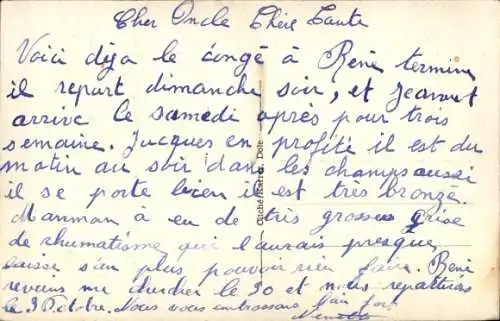 Cher Oncle Chère Tante
Voici déja le congé à René terminé
il repart dimanche soir, et Jeannot
arrive le samedi après pour trois
semaine. Jacques en profite il est du
matin au soir dans les champs aussi
il se porte bien il est très bronzé.
Manman à eu de très grosses crise
de rhumatisme qui l'aurais presque
laisse s'en plus pouvoir rien faire. René
reviens me chercher le 30 et nous repartirons
le 3 Octobre. Nous vous embrassons bien fort
Cliché Dole